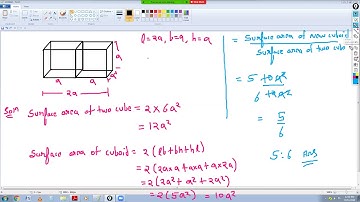 l = 2a, b = a, h = a
a
a
a
a
2a
Soln
Surface area of two cube = 2 × 6a²
= 12a²
Surface area of cuboid = 2 (lb+bh+hl)
= 2 (2a×a + a×a + a×2a)
= 2 (2a² + a² + 2a²)
= 2 (5a²) = 10a²
= Surface area of new cuboid
Surface area of two cube
= 5 10a²
6 12a²
= 5
6
5:6 Ans